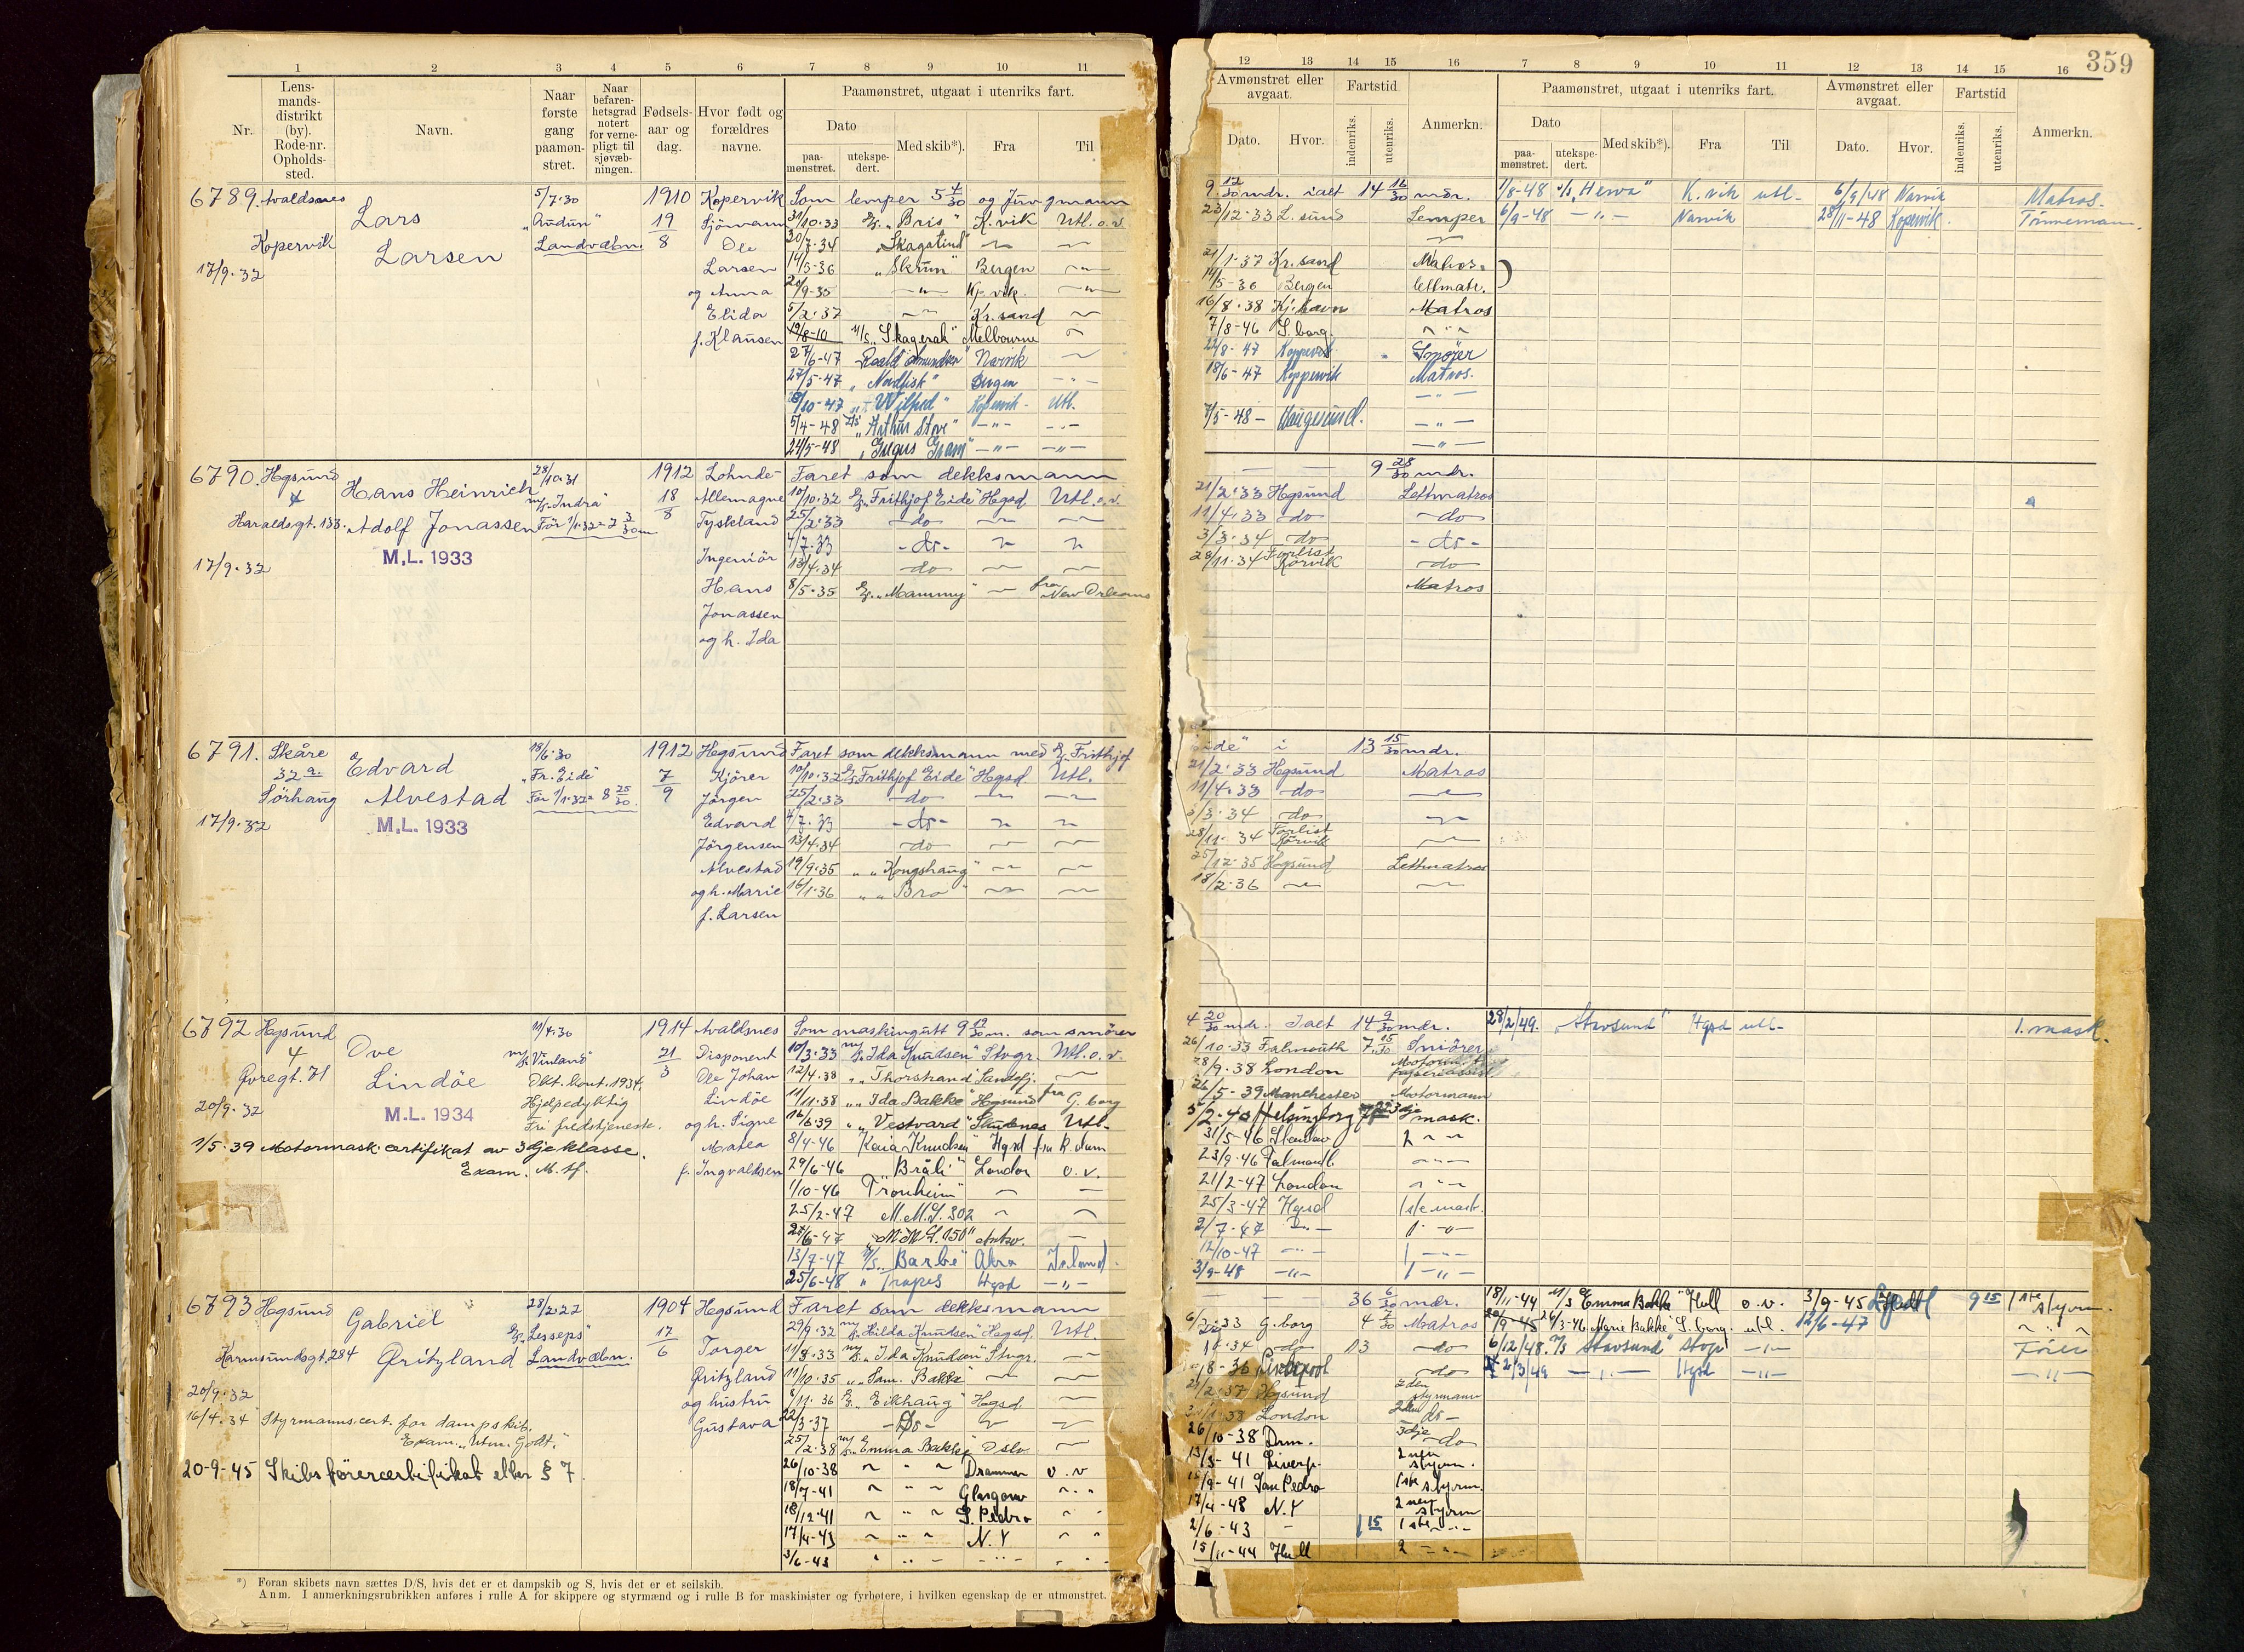 359
1 2 3 4 5 6 7 8 9 10 11
12 13 14 15 16 7 8 9 10 11 12 13 14 15 16
Nr.
Lens-
mands-
distrikt
(by).
Rode-nr.
Opholds-
sted.
Navn.
Naar
første
gang
paamøn-
stret.
Naar
befaren-
hetsgrad
notert
for verne-
pligt til
sjøvæb-
ningen.
Fødsels-
aar og
dag.
Hvor født og
forældres
navne.
Paamønstret, utgaat i utenriks fart.
Dato
paa-
mønstret.
utekspe-
dert.
Med skib*).
Fra
Til
Avmønstret eller
avgaat.
Dato.
Hvor.
Fartstid
indenriks.
utenriks.
Anmerkn.
Paamønstret, utgaat i utenriks fart.
Dato
paa-
mønstret.
utekspe-
dert.
Med skib*).
Fra
Til
Avmønstret eller
avgaat.
Dato.
Hvor.
Fartstid
indenriks.
utenriks.
Anmerkn.
6789. Avaldsnes
Kopervik
17/9.32
Lars
Larsen
5/7.30
"Audun"
Landvæbn.
1910
19
8
Kopervik
Sjømann
Ole
Larsen
og Anna
Elida
f. Klausen
Som lemper 5 4/30 og Jungmann
31/10.33 "Bris" K.vik Utl. o.v.
30/7.34 "Skagatind"
14/5-36 "Skrun" Bergen
20/9-35 Kp.vik.
5/2.37 Kr.sand
19/8-10 M/S "Skagerak" Melbourne
27/6-47 Roald Amundsen Narvik
27/5-47 "Nordfisk" Bergen
8/10-47 "Wilfred" Kopervik - Utl.
5/4-48 "Arthur Stove"
24/5-48 "Gregus Gram"
9 12/30 mdr. ialt 14 16/30 mdr.
23/12.33 L.sund Lemper
21/1.37 Kr.sand Matros.
14/5-36 Bergen lettmatr.
16/8.38 Kj.havn Matros
7/8-46 S.borg.
22/8-47 Koppervik Smører
18/6-47 Koppervik Matros.
7/5-48 - Haugesund.
1/8-48 "Herva" K.vik utl- 6/9/48 Narvik Matros-
6/9-48 Narvik 28/11-48 Kopervik. Tømmermann.
6790. Hgsund
4
Haraldsgt. 133.
17/9.32
Hans Heinrich
Adolf Jonassen
M.L. 1933
28/10.31
"Indra"
Før 1/1.32 = 7 3/30 m
1912
18
8
Lohnde-
Allemagne
Tyskland
Ingeniör
Hans
Jonassen
og h. Ida
Faret som dekksmann
10/10.32 "Frithjof Eide" Hgsd. Utl. o.v.
25/2.33 -do-
4/7.33 -do-
13/4.34 -do-
8/5.35 "Mammy" fra New Orleans
9 28/30 mdr.
21/2.33 Hgsund Lettmatros
11/4.33 do -do-
3/3.34 do -do-
28/11.34 Forlist Rørvik -do-
Matros
6791. Skåre
32 a.
Sörhaug
17/9.32
Edvard
Alvestad
M.L. 1933
18/6.30
"Fr. Eide"
Før 1/1.32 = 8 25/30
1912
7
9
Hegsund
Kjörer
Jörgen
Edvard
Jörgensen
Alvestad
og h. Marie
f. Larsen
Faret som dekksmann med Frithjof
10/10.32 "Frithjof Eide" Hgsd. Utl.
25/2.33 -do-
4/7.33 -do-
13/4.34 -do-
19/9.35 "Kongshaug"
16/1.36 "Bro"
Eide" i 13 15/30 mdr.
21/2.33 Hgsund Matros
11/4.33 do
3/3.34 do
28/11.34 Forlist Rørvik
25/12.35 Hgsund Lettmatros
18/2.36
6792 Hgsund
4
Øvregt. 71
20/9.32
Ove
Lindöe
M.L. 1934
11/4.30
"Vinland"
Okt. Kont. 1934.
Hjelpedyktig
Fri fredstjeneste.
1/5.39 Motormask. certifikat av 3dje klasse.
Exam. M. tf.
1914
21
3
Avaldsnes
Disponent
Ole Johan
Lindöe
og h. Signe
Matea
f. Ingvaldsen
Som maskingutt 9 19/30 m. som smörer
10/3.33 "Ida Knudsen" Stvgr. Utl. o.v.
12/4.38 "Thorstrand" Sandefj.
11/11.38 "Ida Bakke" Hgsund fra G.borg
16/6.39 "Vestvard" Skudenes Utl.
8/4-46 Kaia Knudsen" Hgsd fra R.dam
29/6-46 "Bråli" London o.v.
1/10-46 "Tronheim"
25/2-47 M.M.S. 302
27/6-47 "M.M.S. 150" Antw.
13/7-47 M/S "Barbi" Akra Island.
25/6-48 " Trapes Hgsd
4 20/30 mdr. Ialt 14 9/30 mdr.
26/10.33 Falmouth 7 15/30 Smörer
28/9.38 London Motorm.
26/5-39 Manchester Motormann
5/2.40 Helsingborg 3dje mask.
31/5-46
23/9.46 Falmouth
21/2-47 London
25/3-47 Hgsd 1ste mask.
2/7-47
12/10-47
3/9-48
28/2/49. "Stavsund" Hgsd utl- 1. mask.
6793 Hegsund
Karmsundsgt. 284
20/9.32
16/4.34 Styrmannscert. for dampskib.
Exam. "Utm. Godt."
20-9-45 Skibsførercertifikat eller § 7
Gabriel
Øritzland
28/2.22
"Lesseps"
Landvæbn.
1904
17
6
Hegsund
Torger
Øritzland
og hustru
Gustava
Faret som dekksmann
29/9.32 "Hilda Knudsen" Hegsd. Utl.
11/8.33 "Ida Knudsen" Stvgr.
11/10.35 "Sam. Bakke"
8/11.36 "Eikhaug" Hegsd
22/3-37 -Do-
25/2.38 "Emma Bakke" Oslo
26/10-38 Drammen o.v
18/7-41 Glasgow
18/12-41 S. Pedro
17/4-43 N.Y
3/6-43
36 6/30 mdr.
G.borg 4 7/30 Matros
do 13 do
Liverpool do
Hgsund 2den styrmann
London do
26/10-38 Drm. 3dje do
13/5-41 Liverp. 2nen styrm.
San Pedro 1ste styrm.
17/4-48 N.Y 2nen styrm
2/6-43 1 15 1ste
15/11-44 Hull 2
18/11-44 M/S Emma Bakke" Hull o.v. 3/9-45 9 15 1ste styrm.
Marie Bakke S.borg. utl. 12/6-47
6/12/48. M/S "Stavsund" Stvgr Fører
2/3/49 Hgsd
*) Foran skibets navn sættes D/S, hvis det er et dampskib og S, hvis det er et seilskib.
Anm. I anmerkningsrubrikken anføres i rulle A for skippere og styrmænd og i rulle B for maskinister og fyrbøtere, i hvilken egenskap de er utmønstret.